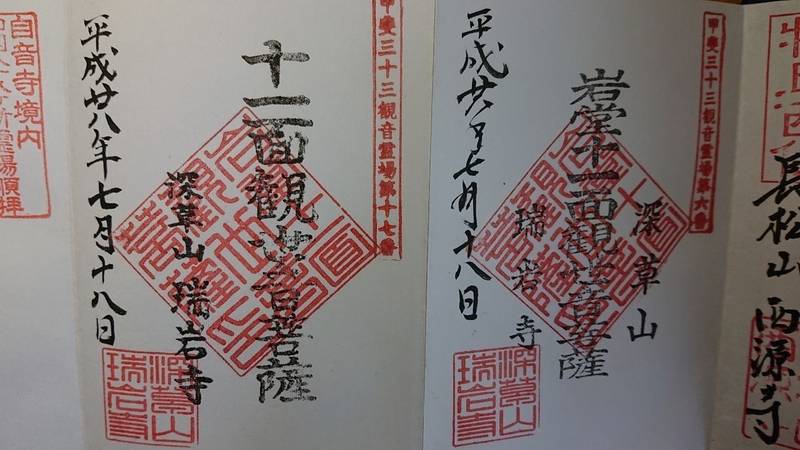 長松山 西源寺
甲斐三十三觀音靈場第六番
深草山
岩堂十一面觀世音菩薩
瑞岩寺
平成廿八年七月十八日
深草山
瑞岩寺
甲斐三十三觀音靈場第十七番
十一面觀世音菩薩
深草山 瑞岩寺
平成廿八年七月十八日
深草山
瑞岩寺
音寺境内
霊場順拝